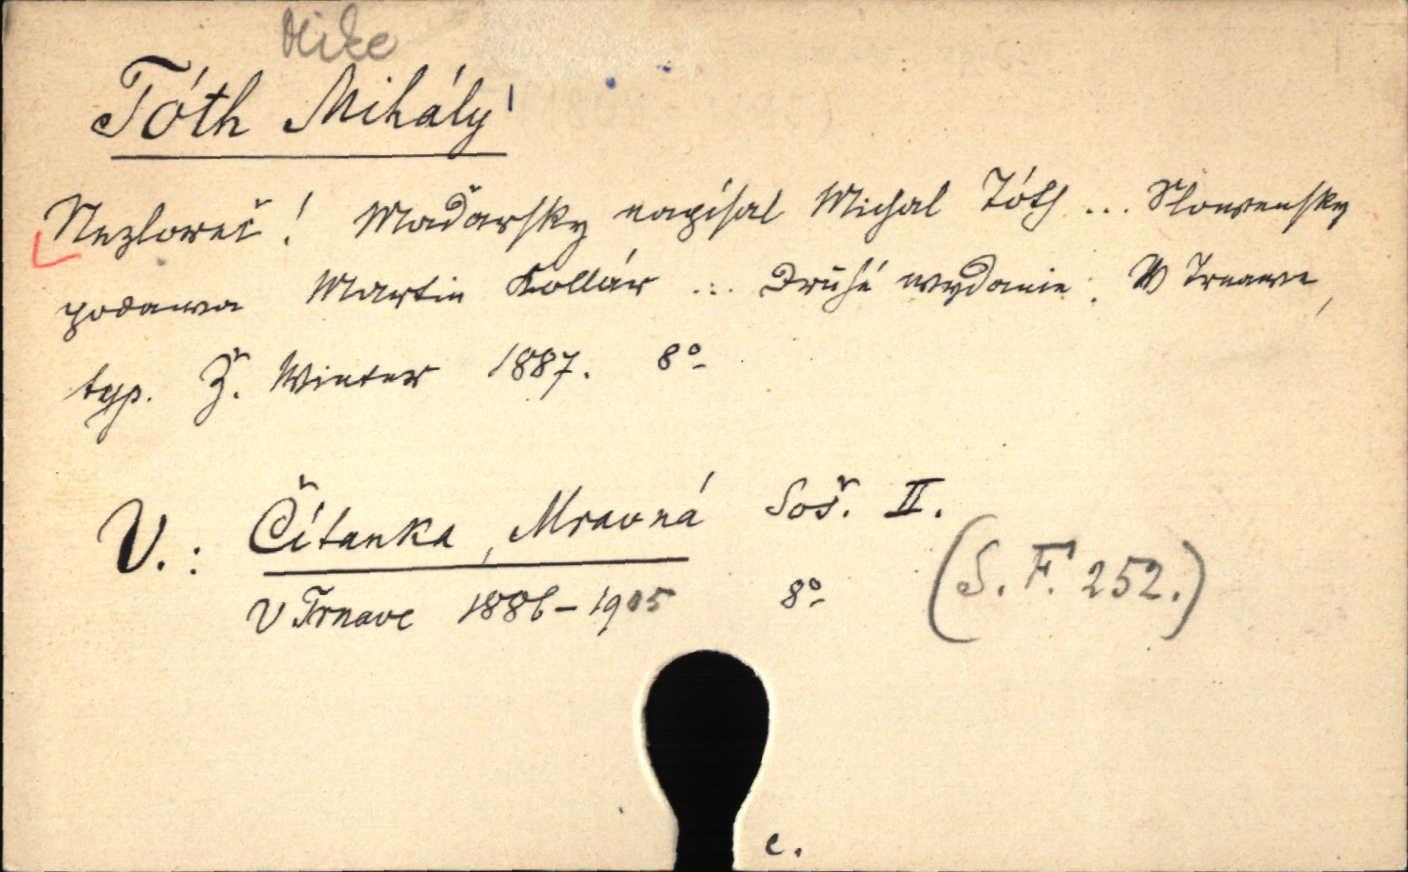 Mike
Tóth Mihály
Nezloreč! Maďarsky napísal Michal Tóth ... Slowensky
podawa Martin Kollár ... Druhé wydanie. W Trnawe,
typ. Ž. Winter 1887. 8°
V.: Čítanka, Mravná Soš. II.
V Trnave 1886-1905 8°
(S. F. 252.)
c.